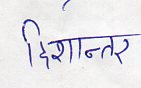 दिशान्तर